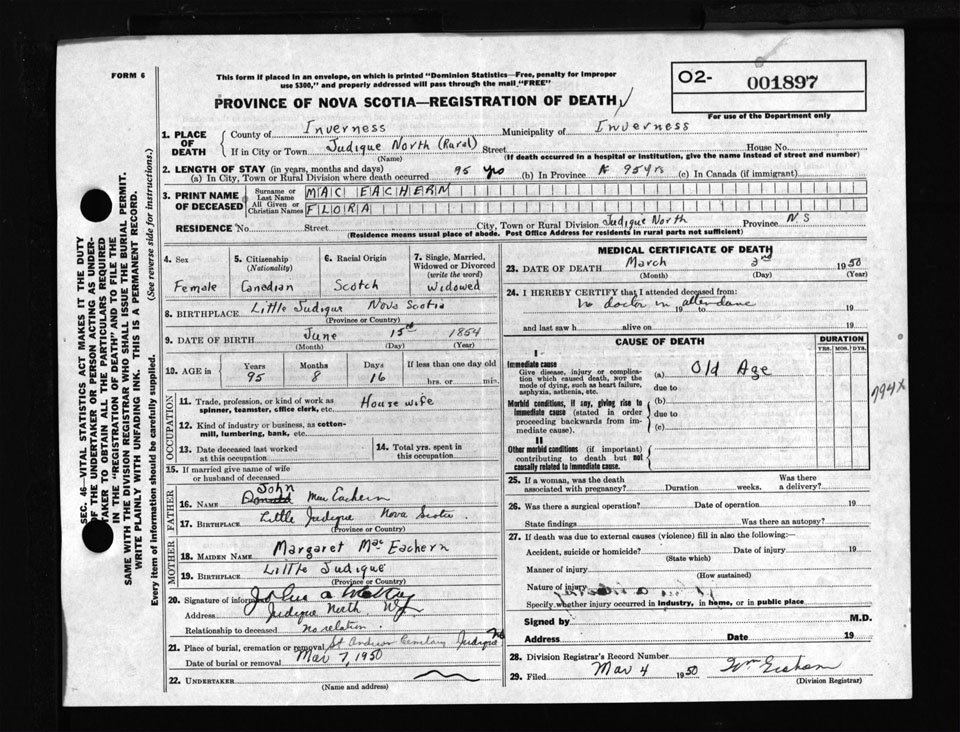 FORM 6
This form if placed in an envelope, on which is printed "Dominion Statistics—Free, penalty for improper
use $300," and properly addressed will pass through the mail "FREE"
PROVINCE OF NOVA SCOTIA—REGISTRATION OF DEATH
O2- 001897
For use of the Department only
SEC. 46—VITAL STATISTICS ACT MAKES IT THE DUTY
OF THE UNDERTAKER OR PERSON ACTING AS UNDER-
TAKER TO OBTAIN ALL THE PARTICULARS REQUIRED
IN THE "REGISTRATION OF DEATH" AND TO FILE THE
SAME WITH THE DIVISION REGISTRAR WHO SHALL ISSUE THE BURIAL PERMIT.
WRITE PLAINLY WITH UNFADING INK. THIS IS A PERMANENT RECORD.
Every item of information should be carefully supplied. (See reverse side for instructions.)
1. PLACE OF DEATH
County of Inverness Municipality of Inverness
If in City or Town Judique North (Rural) Street House No.
(Name) (If death occurred in a hospital or institution, give the name instead of street and number)
2. LENGTH OF STAY (in years, months and days)
(a) In City, Town or Rural Division where death occurred 95 yrs (b) In Province 95 yrs (c) In Canada (if immigrant)
3. PRINT NAME OF DECEASED
Surname or Last Name MAC EACHERN
All Given or Christian Names FLORA
RESIDENCE No. Street City, Town or Rural Division Judique North Province N S
(Residence means usual place of abode. Post Office Address for residents in rural parts not sufficient)
4. Sex Female
5. Citizenship (Nationality) Canadian
6. Racial Origin Scotch
7. Single, Married, Widowed or Divorced (write the word) Widowed
8. BIRTHPLACE Little Judique Nova Scotia
(Province or Country)
9. DATE OF BIRTH June 15th 1854
(Month) (Day) (Year)
10. AGE in Years 95 Months 8 Days 16 If less than one day old hrs. or min.
OCCUPATION
11. Trade, profession, or kind of work as spinner, teamster, office clerk, etc. House wife
12. Kind of industry or business, as cotton-mill, lumbering, bank, etc.
13. Date deceased last worked at this occupation
14. Total yrs. spent in this occupation
15. If married give name of wife or husband of deceased
FATHER
John
16. NAME Donald Mac Eachern
17. BIRTHPLACE Little Judique Nova Scotia
(Province or Country)
MOTHER
18. MAIDEN NAME Margaret MacEachern
19. BIRTHPLACE Little Judique
(Province or Country)
20. Signature of informant
Address Judique North
Relationship to deceased no relation
21. Place of burial, cremation or removal St Andrews Cemetary Judique NS
Date of burial or removal Mar 7, 1950
22. UNDERTAKER
(Name and address)
MEDICAL CERTIFICATE OF DEATH
23. DATE OF DEATH March 3rd 1950
(Month) (Day) (Year)
24. I HEREBY CERTIFY that I attended deceased from:
No doctor in attendance
19 to 19
and last saw h alive on 19
CAUSE OF DEATH
DURATION
YRS. MOS. DYS.
I
Immediate cause
Give disease, injury or complication which caused death, NOT the mode of dying, such as heart failure, asphyxia, asthenia, etc.
(a) Old Age
due to
Morbid conditions, if any, giving rise to immediate cause (stated in order proceeding backwards from immediate cause).
(b)
due to
(c)
II
Other morbid conditions (if important) contributing to death but not causally related to immediate cause.
794X
25. If a woman, was the death associated with pregnancy? Duration weeks. Was there a delivery?
26. Was there a surgical operation? Date of operation 19
State findings Was there an autopsy?
27. If death was due to external causes (violence) fill in also the following:—
Accident, suicide or homicide? Date of injury 19
(State which)
Manner of injury
(How sustained)
Nature of injury
Specify whether injury occurred in industry, in home, or in public place
Signed by M.D.
Address Date 19
28. Division Registrar's Record Number
29. Filed Mar 4 1950 Wm Graham
(Division Registrar)